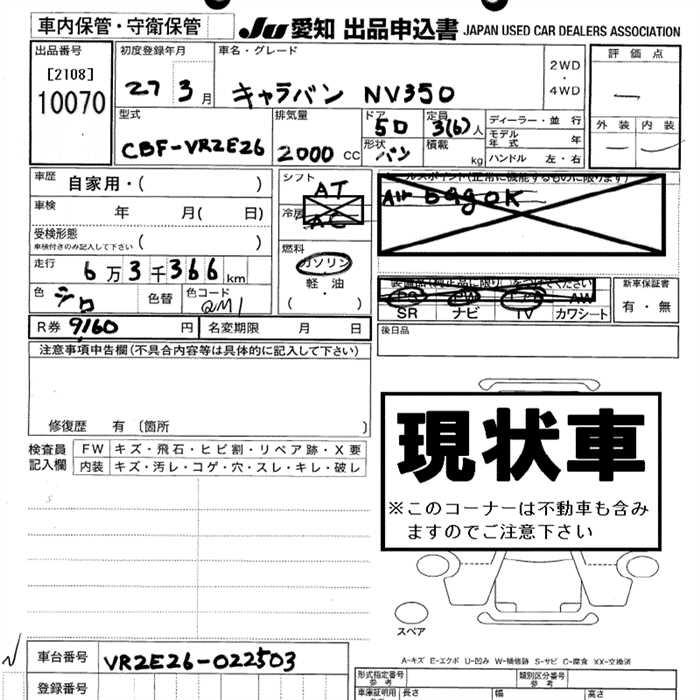 車内保管・守衛保管
JU 愛知 出品申込書 JAPAN USED CAR DEALERS ASSOCIATION
出品番号
[2108]
10070
初度登録年月
27 3月
車名・グレード
キャラバン NV350
2WD
・
4WD
評価点
外装 内装
型式
CBF-VR2E26
排気量
2000 CC
ドア
5D
形状
バン
定員
3(6)人
積載
kg
ディーラー・並行
モデル年式 年
ハンドル 左・右
車歴 自家用・( )
車検 年 月( 日)
受検形態
車検付きのみ記入して下さい ( )
走行 6万3千366km
色 シロ 色替 色コード QM1
R券 9160 円 名変期限 月 日
シフト
AT
冷房
AC
燃料
ガソリン
・
軽油
( ・ )
セールスポイント(正常に機能するものに限ります)
Air bag OK
装備品(純正品に限り)をつけてください
PS PW エアB AW
SR ナビ TV カワシート
新車保証書
有・無
後日品
注意事項申告欄(不具合内容等は具体的に記入して下さい)
修復歴 有 〔箇所 〕
検査員
記入欄
FW キズ・飛石・ヒビ割・リペア跡・X要
内装 キズ・汚レ・コゲ・穴・スレ・キレ・破レ
現状車
※このコーナーは不動車も含み
ますのでご注意下さい
スペア
A-キズ E-エクボ U-凹み W-補修跡 S-サビ C-腐食 XX-交換済
車台番号 VR2E26-022503
登録番号
形式指定番号
参考
類別区分番号
参考
車庫証明用
参考
長さ 幅 高さ